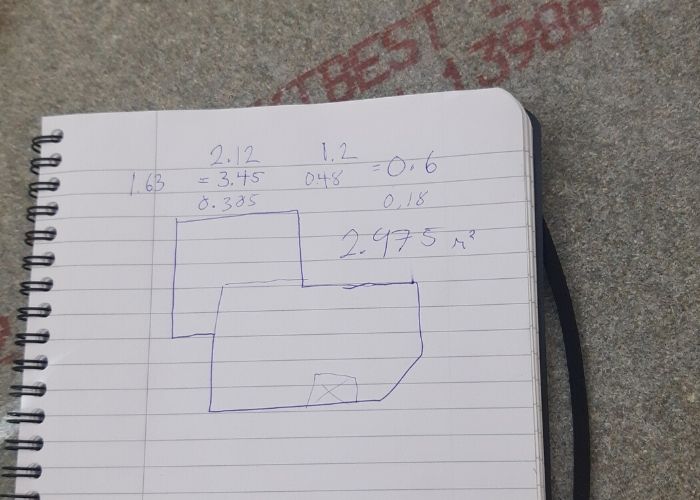 TBEST
13986
2.12 1.2
1.63 = 3.45 0.48 = 0.6
0.385 0.18
2.475 m²